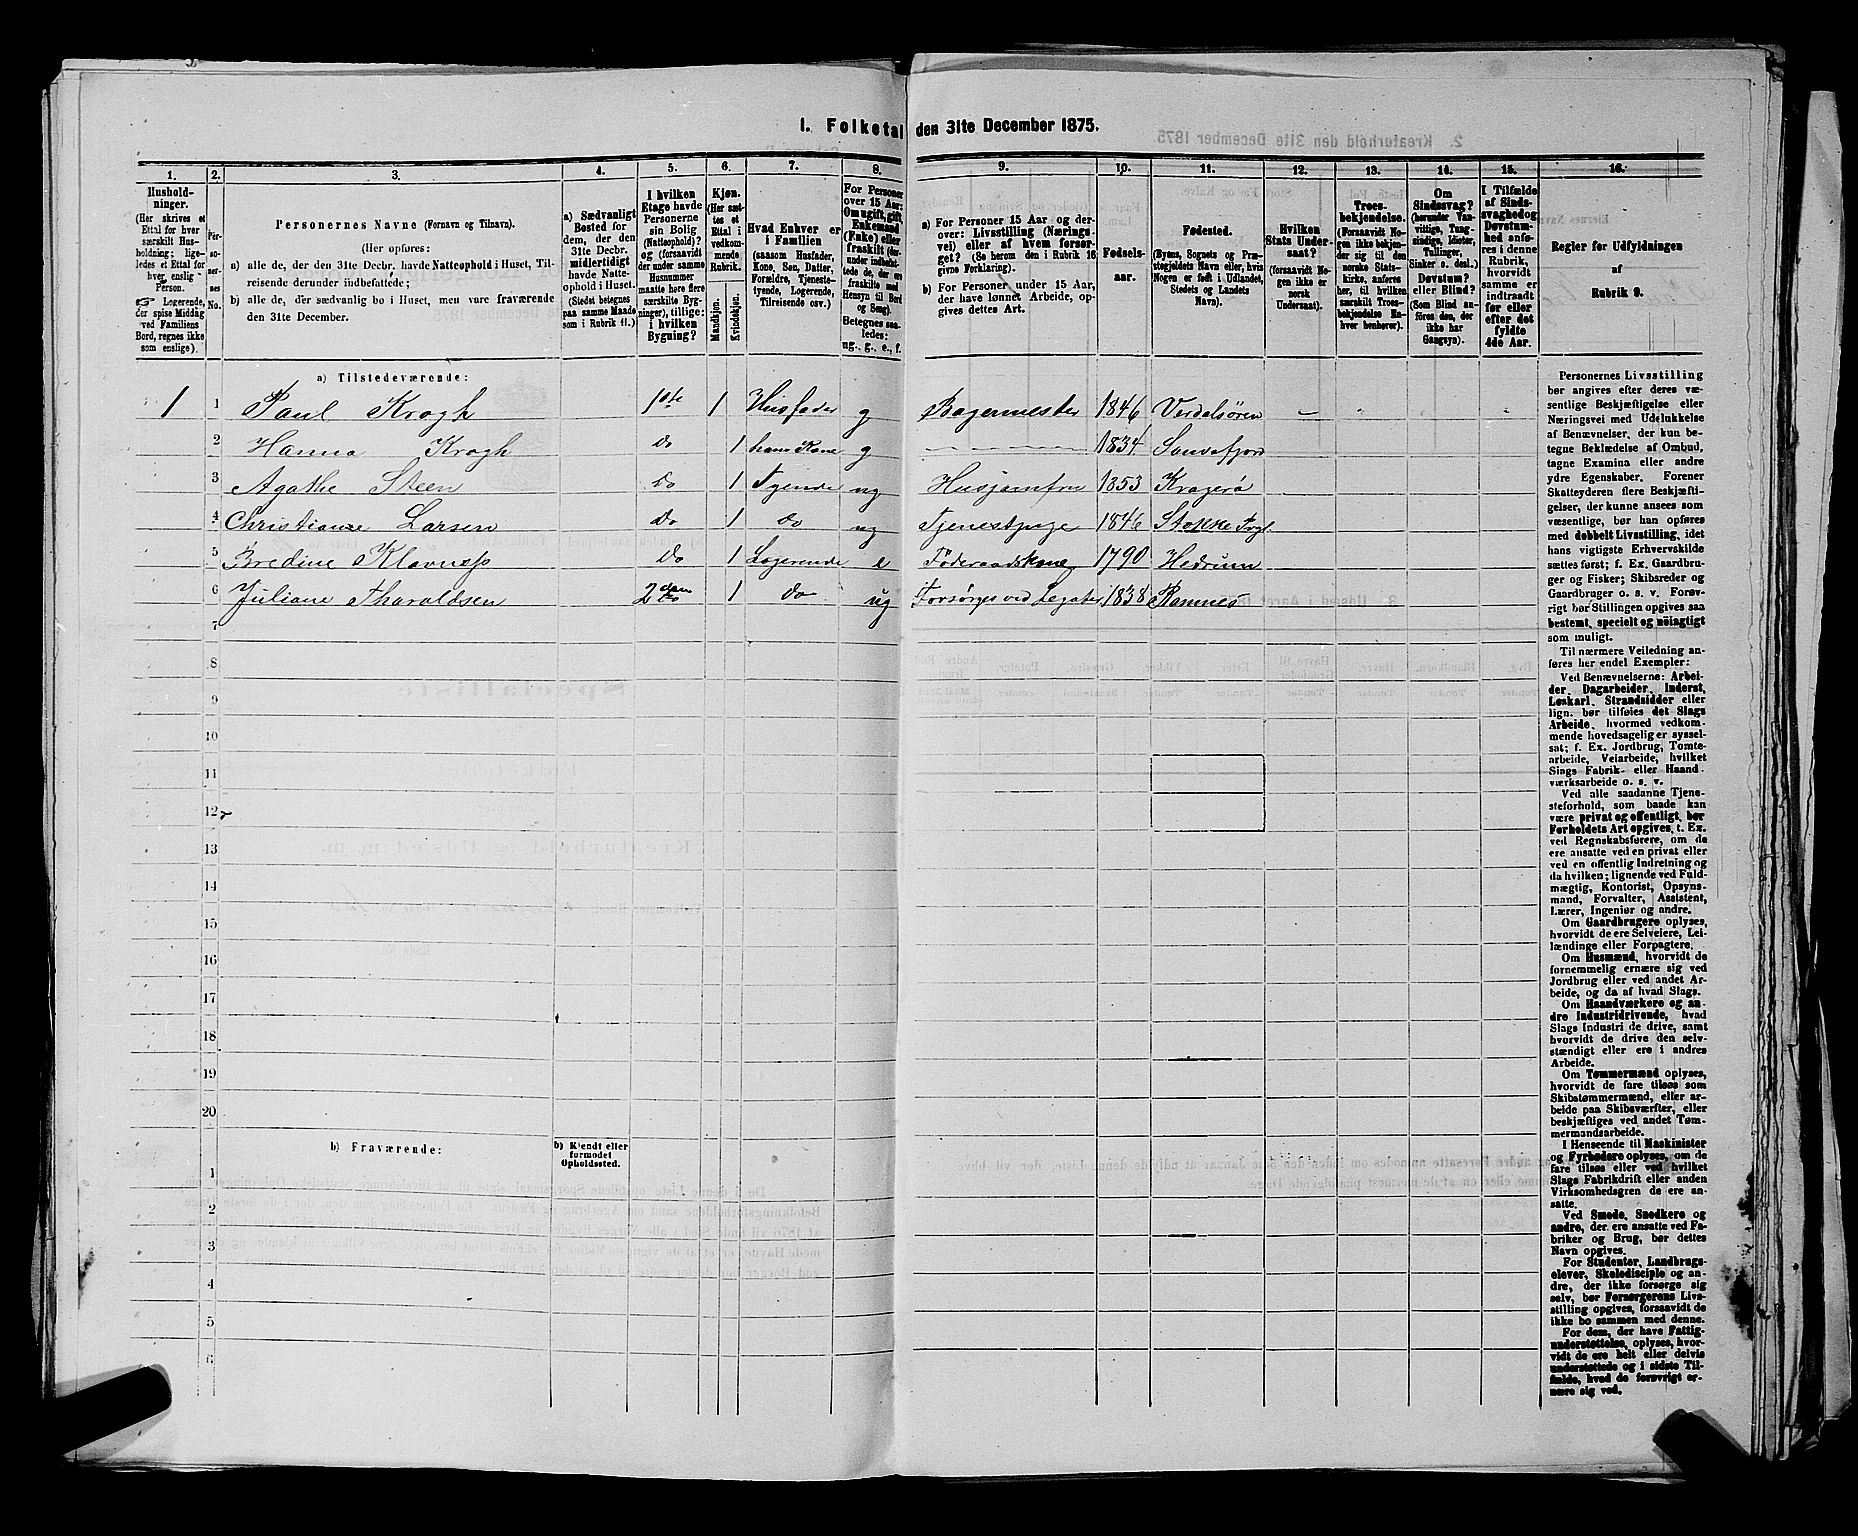 I. Folketal den 31te December 1875.
1. 2. 3. 4. 5. 6. 7. 8. 9. 10. 11. 12. 13. 14. 15. 16.
Husholdninger.
(Her skrives et
Ettal for hver
særskilt Husholdning;
ligeledes et Ettal for
hver enslig
Person.
☞ Logerende,
der spise Middag
ved Familiens
Bord, regnes ikke
som enslige).
Personernes No.
Personernes Navne (Fornavn og Tilnavn).
(Her opføres:
a) alle de, der den 31te Decbr. havde Natteophold i Huset, Tilreisende derunder indbefattede;
b) alle de, der sædvanlig bo i Huset, men vare fraværende
den 31te December.
a) Sædvanligt
Bosted for
dem, der den
31te Decbr.
midlertidigt
havde Natteophold i Huset.
(Stedet betegnes
paa samme Maade
som i Rubrik 11.)
I hvilken
Etage havde
Personerne
sin Bolig
(Natteophold)?
og (forsaavidt
der under samme
Husnummer
maatte høre flere
særskilte Bygninger), tillige:
i hvilken
Bygning?
Kjøn.
(Her sættes et
Ettal i
vedkommende
Rubrik.
Mandkjøn.
Kvindekjøn.
Hvad Enhver er
i Familien
(saasom Husfader,
Kone, Søn, Datter,
Forældre, Tjenestetyende, Logerende,
Tilreisende osv.)
For Personer
over 15 Aar:
Om ugift, gift,
Enkemand
(Enke) eller
fraskilt
Hensyn til Bord
og Seng).
Betegnes saaledes:
ug., g., e., f.
a) For Personer 15 Aar og derover: Livsstilling (Næringsvei) eller af hvem forsørget? (Se herom den i Rubrik 16
givne Forklaring).
b) For Personer under 15 Aar,
der have lønnet Arbeide, opgives dettes Art.
Fødselsaar.
Fødested.
(Byens, Sognets og Præstegjeldets Navn eller, hvis
Nogen er født i Udlandet,
Stedets og Landets
Navn).
Hvilken
Stats Undersaat?
(forsaavidt Nogen ikke er
norsk
Undersaat).
Troesbekjendelse.
(Forsaavidt Nogen ikke bekjender sig til den
norske Statskirke, anføres
her, til hvilken
særskilt Troesbekjendelse Enhver henhører).
Om
Sindssvag?
(herunder Vanvittige, Tungsindige, Idioter,
Tullinger,
Sinker o. desl.)
Døvstum?
eller Blind?
(Som Blind anføres den, der
ikke har
Gangsyn).
I Tilfælde
af Sindssvaghed og
Døvstumhed anføres i denne
Rubrik,
hvorvidt
samme er
indtraadt
før eller
efter det
fyldte
4de Aar.
Regler for Udfyldningen
af
Rubrik 9.
a) Tilstedeværende:
1 1 Paul Krogh 1ste 1 Husfader g Bagermester 1846 Verdalsören —
2 Hanna Krogh do 1 hans Kone g 1834 Sandefjord
3 Agathe Steen do 1 Tyende ug Husjomfru 1853 Kragerö
4 Christiane Larsen do 1 do ug Tjenestpige 1846 Stokke Prgl.
5 Bredine Klavness do 1 Logerende e Föderaadskone 1790 Hedrum
6 Juliane Tharaldsen 2den do 1 do ug Forsörges ved Legater 1838 Ramnes
7
8
9
10
11
12
13
14
15
16
17
18
19
20
b) Fraværende:
b) Kjendt eller
formodet
Opholdssted.
1
2
3
4
5
6
Personernes Livsstilling
bør angives efter deres væsentlige Beskjæftigelse eller
Næringsvei med Udelukkelse
af Benævnelser, der kun betegne Beklædelse af Ombud,
tagne Examina eller andre
ydre Egenskaber. Forener
Skatteyderen flere Beskjæftigelser, der kunne ansees som
væsentlige, bør han opføres
med dobbelt Livsstilling, idet
hans vigtigste Erhvervskilde
sættes først; f. Ex. Gaardbruger og Fisker; Skibsreder og
Gaardbruger o. s. v. Forøvrigt bør Stillingen opgives saa
bestemt, specielt og nøiagtigt
som muligt.
Til nærmere Veiledning anføres her endel Exempler:
Ved Benævnelserne: Arbeider, Dagarbeider, Inderst,
Løskarl, Strandsidder eller
lign. bør tilføies det Slags
Arbeide, hvormed vedkommende hovedsagelig er sysselsat; f. Ex. Jordbrug, Tomtearbeide, Veiarbeide, hvilket
Slags Fabrik- eller Haandværksarbeide o. s. v.
Ved alle saadanne Tjenesteforhold, som baade kan
være privat og offentligt, bør
Forholdets Art opgives, t. Ex.
ved Regnskabsførere, om de
ere ansatte ved en privat eller
ved en offentlig Indretning og
da hvilken; lignende ved Fuldmægtig, Kontorist, Opsynsmand, Forvalter, Assistent,
Lærer, Ingeniør og andre.
Om Gaardbrugere oplyses,
hvorvidt de ere Selveiere, Leilændinge eller Forpagtere.
Om Husmænd, hvorvidt de
fornemmelig ernære sig ved
Jordbrug eller ved andet Arbeide, og da af hvad Slags.
Om Haandværkere og andre Industridrivende, hvad
Slags Industri de drive, samt
hvorvidt de drive den selvstændigt eller ere i andres
Arbeide.
Om Tømmermænd oplyses,
hvorvidt de fare tilsøs som
Skibstømmermænd, eller arbeide paa Skibsværfter, eller
beskjæftiges ved andet Tømmermandsarbeide.
I Henseende til Maskinister
og Fyrbødere oplyses, om de
fare tilsøs eller ved hvilket
Slags Fabrikdrift eller anden
Virksomhedsgren de ere ansatte.
Ved Smede, Snedkere og
andre, der ere ansatte ved Fabriker og Brug, bør dettes
Navn opgives.
For Studenter, Landbrugselever, Skoledisciple og andre, der ikke forsørge sig
selv, bør Forsørgerens Livsstilling opgives, forsaavidt de
ikke bo sammen med denne.
For dem, der have Fattigunderstøttelse, oplyses, hvorvidt de ere helt eller delvis
understøttede og i sidste Tilfælde, hvad de forøvrigt ernære sig ved.